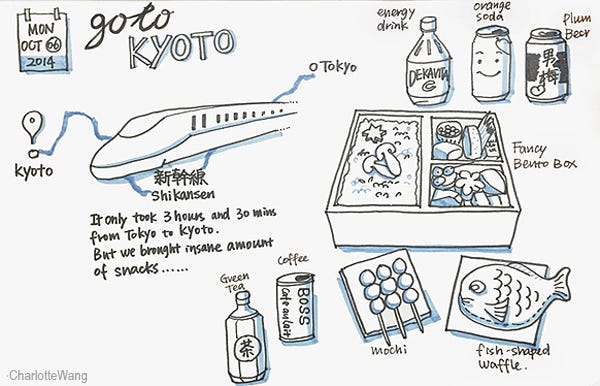 MON
OCT 06
2014
go to
KYOTO
Tokyo
Kyoto
新幹線
Shikansen
It only took 3 hours and 30 mins
from Tokyo to Kyoto.
But we brought insane amount
of snacks......
energy
drink
DEKAVITA
C
orange
soda
Plum
Beer
男梅
Fancy
Bento Box
Green
Tea
茶
Coffee
BOSS
Cafe au Lait
mochi
fish-shaped
waffle.
CharlotteWang